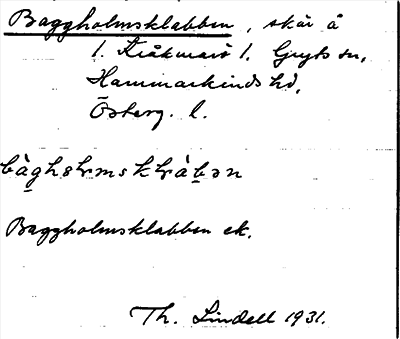 Baggholmsklabben, skär å
l. Kråkmarö l. Gryts sn,
Hammarkinds hd,
Österg. l.
bàghɷlmsklàbən
Baggholmsklabben ek.
Th. Lindell 1931.